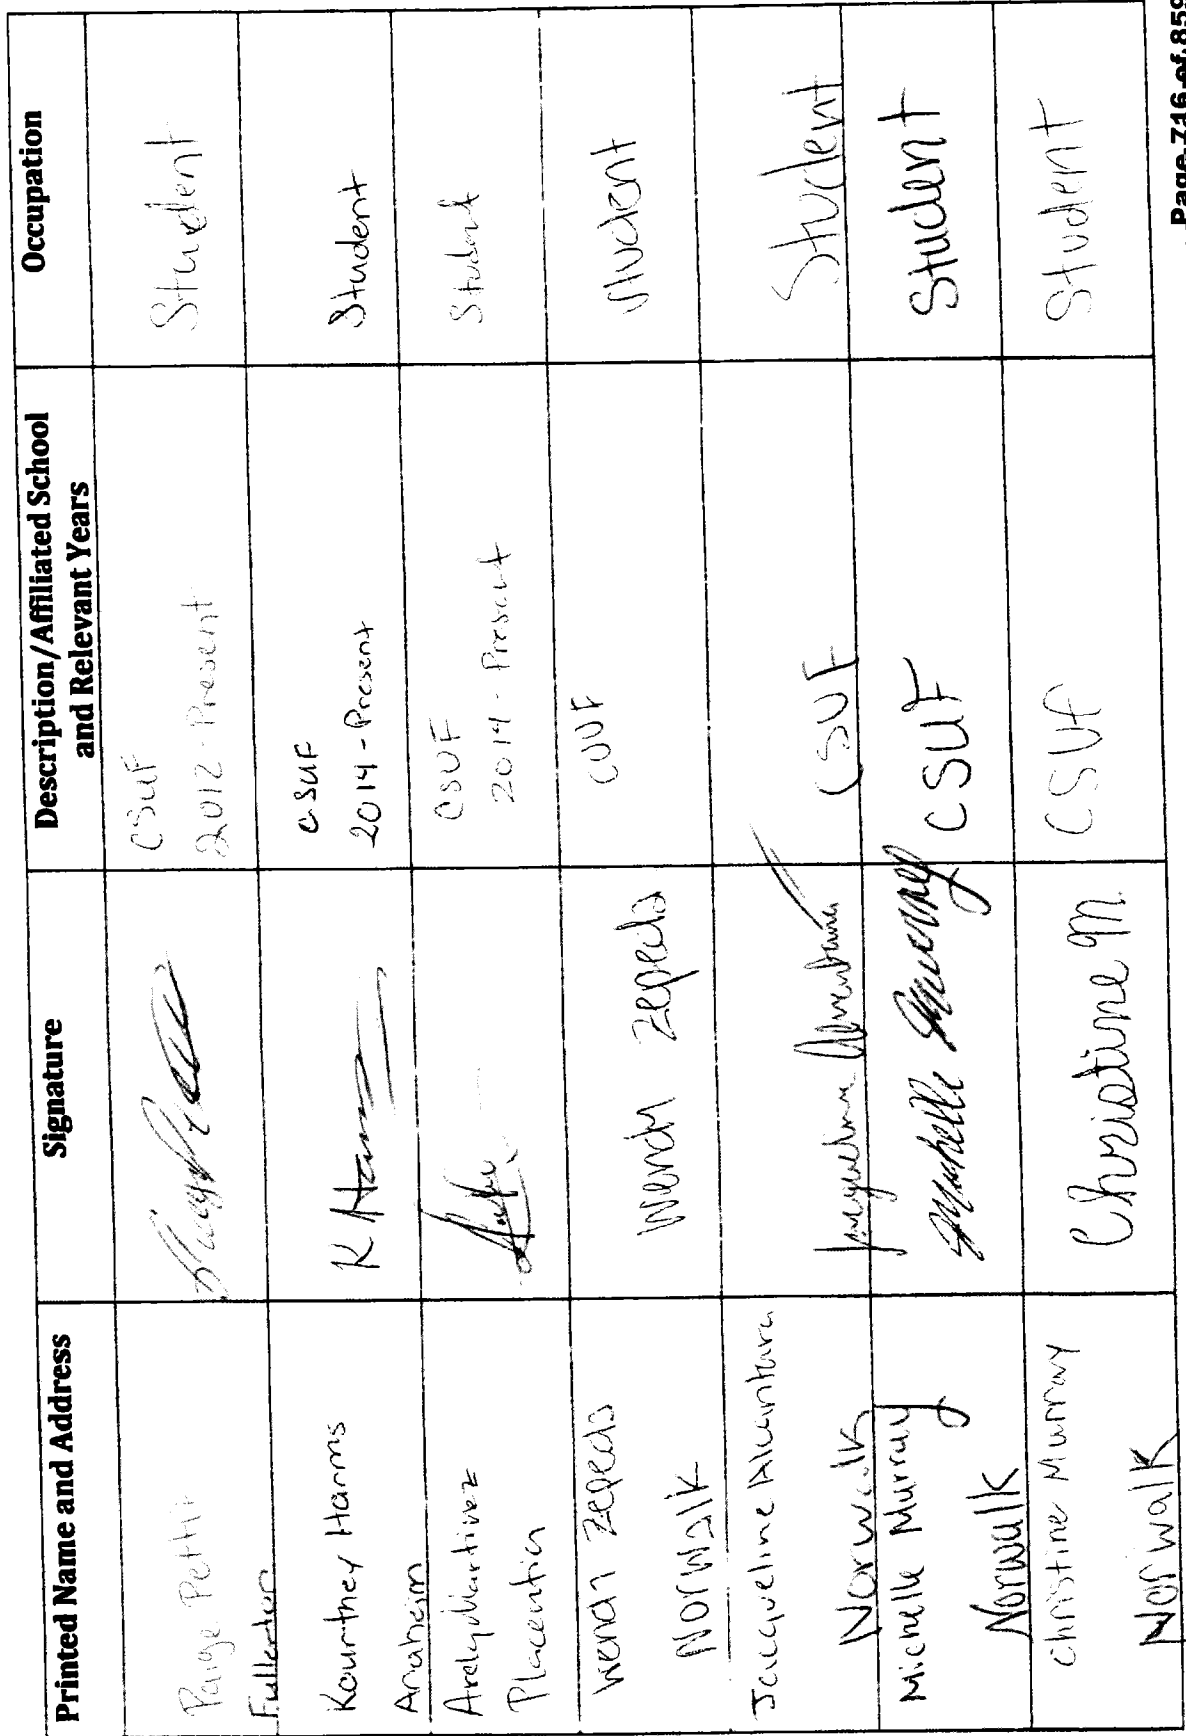 Printed Name and Address
Signature
Description/Affiliated School
and Relevant Years
Occupation
Paige
Fullerton
CSUF
2012 - Present
Student
Kourtney Harms
Anaheim
K Harms
CSUF
2014 - Present
Student
Arely Martinez
Placentia
CSUF
2014 - Present
Student
Wendy Zepeda
Norwalk
Wendy Zepeda
Student
Jacqueline Alcantara
Norwalk
Jacqueline Alcantara
CSUF
Student
Michelle Murray
Norwalk
Michelle Murray
CSUF
Student
Christine Murray
Norwalk
Christine M.
CSUF
Student
Page 716 of 859